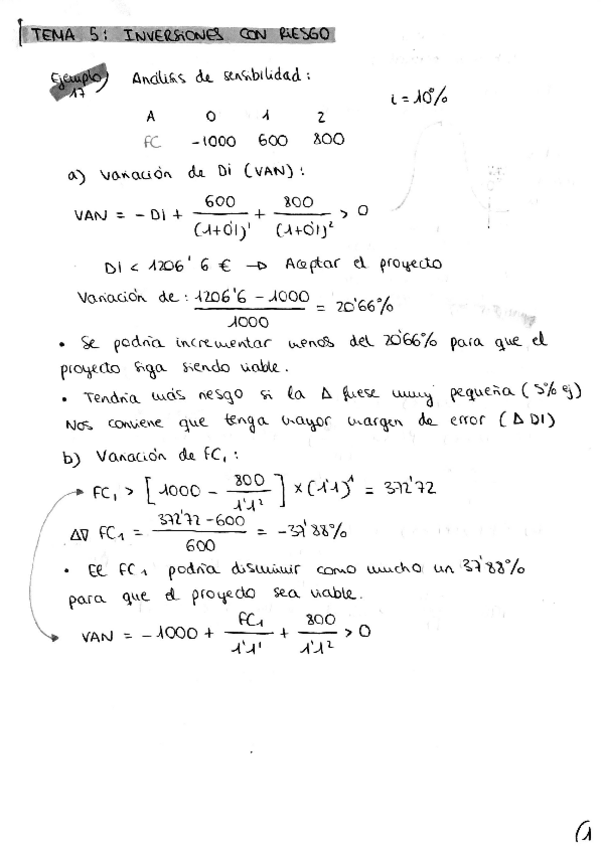 TEMA 5: INVERSIONES CON RIESGO
Ejemplo 17) Análisis de sensibilidad:
i = 10%
A 0 1 2
FC -1000 600 800
a) Variación de Di (VAN):
VAN = - Di + 600/(1+0'1)¹ + 800/(1+0'1)² > 0
Di < 1206'6 € → Aceptar el proyecto
Variación de: (1206'6 - 1000)/1000 = 20'66%
• Se podría incrementar menos del 20'66% para que el
proyecto siga siendo viable.
• Tendría más riesgo si la Δ fuese muy pequeña (5% ej)
Nos conviene que tenga mayor margen de error (Δ DI)
b) Variación de FC₁:
FC₁ > [1000 - 800/1'1²] × (1'1)¹ = 372'72
Δ∇ FC₁ = (372'72 - 600)/600 = -37'88%
• El FC₁ podría disminuir como mucho un 37'88%
para que el proyecto sea viable.
VAN = -1000 + FC₁/1'1¹ + 800/1'1² > 0
(1